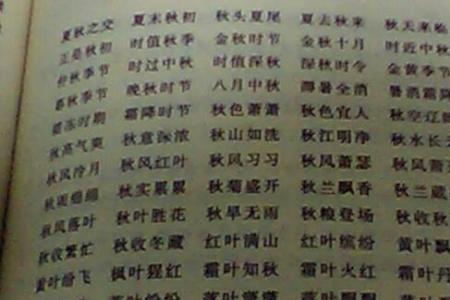 夏秋之交 夏末秋初 秋头夏尾 夏去秋来 秋天来临
正是秋初 时值秋季 金秋时节 金秋十月 时近中秋
仲秋季节 时过中秋 时值深秋 深秋时令 金黄季节
暮秋季节 晚秋时节 八月中秋 溽暑全消 暑消霜
霜冻时期 霜降时节 秋色萧萧 秋色宜人 秋空辽
秋高气爽 秋意深浓 秋山如洗 秋江明净 秋水长
秋风冷月 秋风红叶 秋风习习 秋风萧瑟 秋风萧
秋雨绵绵 秋实累累 秋菊盛开 秋兰飘香 秋兰
秋风落叶 秋叶胜花 秋旱无雨 秋粮登场 秋收秋
秋收繁忙 秋收冬藏 红叶满山 红叶缤纷 黄叶飘
黄叶纷飞 枫叶猩红 霜叶知秋 霜叶火红 霜叶丹
落叶纷纷 落叶 落叶飘飘